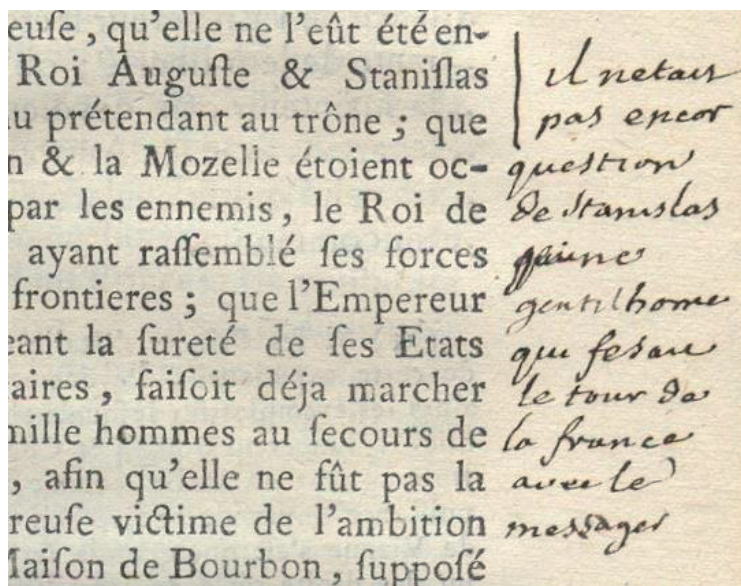 euſe, qu'elle ne l'eût été en-
Roi Auguſte & Staniſlas
u prétendant au trône ; que
n & la Mozelle étoient oc-
par les ennemis, le Roi de
ayant raſſemblé ſes forces
frontieres ; que l'Empereur
eant la ſureté de ſes Etats
aires, faiſoit déja marcher
mille hommes au ſecours de
, afin qu'elle ne fût pas la
reuſe victime de l'ambition
Maiſon de Bourbon, ſuppoſé
il netait
pas encor
question
de stanislas
jeune
gentilhome
qui fesait
le tour de
la france
avec le
messager